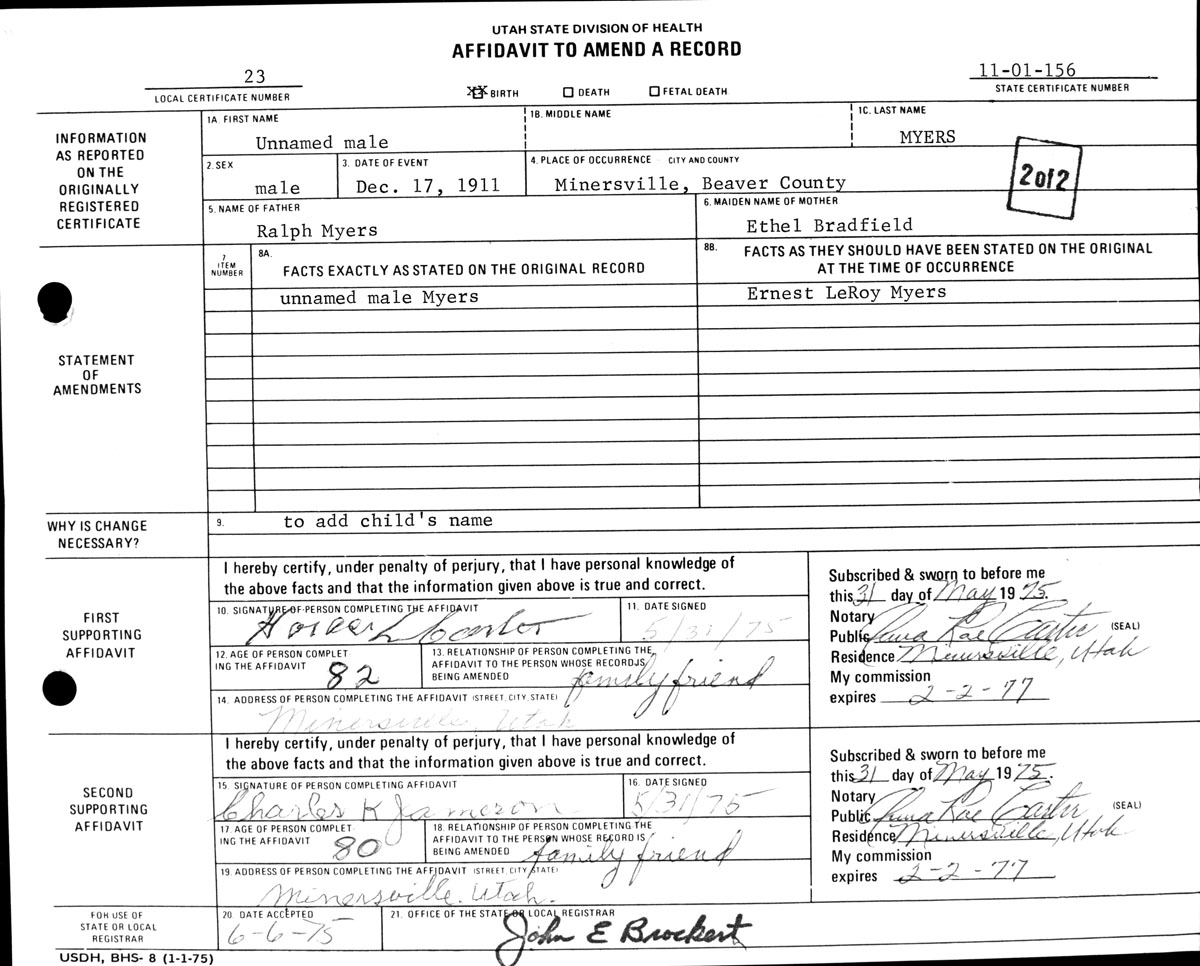 UTAH STATE DIVISION OF HEALTH
AFFIDAVIT TO AMEND A RECORD
23
LOCAL CERTIFICATE NUMBER
XX BIRTH DEATH FETAL DEATH
11-01-156
STATE CERTIFICATE NUMBER
INFORMATION
AS REPORTED
ON THE
ORIGINALLY
REGISTERED
CERTIFICATE
1A. FIRST NAME
Unnamed male
1B. MIDDLE NAME
1C. LAST NAME
MYERS
2. SEX
male
3. DATE OF EVENT
Dec. 17, 1911
4. PLACE OF OCCURRENCE - CITY AND COUNTY
Minersville, Beaver County
2 of 2
5. NAME OF FATHER
Ralph Myers
6. MAIDEN NAME OF MOTHER
Ethel Bradfield
STATEMENT
OF
AMENDMENTS
7
ITEM
NUMBER
8A.
FACTS EXACTLY AS STATED ON THE ORIGINAL RECORD
8B. FACTS AS THEY SHOULD HAVE BEEN STATED ON THE ORIGINAL
AT THE TIME OF OCCURRENCE
unnamed male Myers
Ernest LeRoy Myers
WHY IS CHANGE
NECESSARY?
9. to add child's name
FIRST
SUPPORTING
AFFIDAVIT
I hereby certify, under penalty of perjury, that I have personal knowledge of
the above facts and that the information given above is true and correct.
10. SIGNATURE OF PERSON COMPLETING THE AFFIDAVIT
11. DATE SIGNED
5/31/75
12. AGE OF PERSON COMPLET
ING THE AFFIDAVIT 82
13. RELATIONSHIP OF PERSON COMPLETING THE
AFFIDAVIT TO THE PERSON WHOSE RECORD IS
BEING AMENDED family friend
14. ADDRESS OF PERSON COMPLETING THE AFFIDAVIT (STREET, CITY, STATE)
Minersville, Utah
Subscribed & sworn to before me
this 31 day of May 1975.
Notary
Public Rae Carter (SEAL)
Residence Minersville, Utah
My commission
expires 2-2-77
SECOND
SUPPORTING
AFFIDAVIT
I hereby certify, under penalty of perjury, that I have personal knowledge of
the above facts and that the information given above is true and correct.
15. SIGNATURE OF PERSON COMPLETING AFFIDAVIT
Charles K Jameson
16. DATE SIGNED
5/31/75
17. AGE OF PERSON COMPLET
ING THE AFFIDAVIT 80
18. RELATIONSHIP OF PERSON COMPLETING THE
AFFIDAVIT TO THE PERSON WHOSE RECORD IS
BEING AMENDED family friend
19. ADDRESS OF PERSON COMPLETING THE AFFIDAVIT (STREET, CITY, STATE)
Minersville, Utah.
Subscribed & sworn to before me
this 31 day of May 1975.
Notary
Public Rae Carter (SEAL)
Residence Minersville, Utah
My commission
expires 2-2-77
FOR USE OF
STATE OR LOCAL
REGISTRAR
20. DATE ACCEPTED
6-6-75
21. OFFICE OF THE STATE OR LOCAL REGISTRAR
John E Brockert
USDH, BHS- 8 (1-1-75)